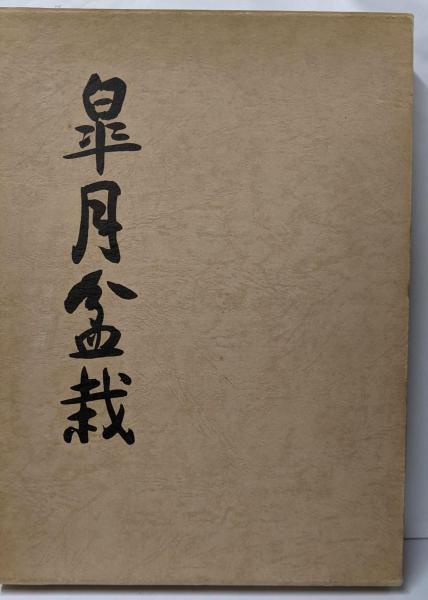 皐月盆栽